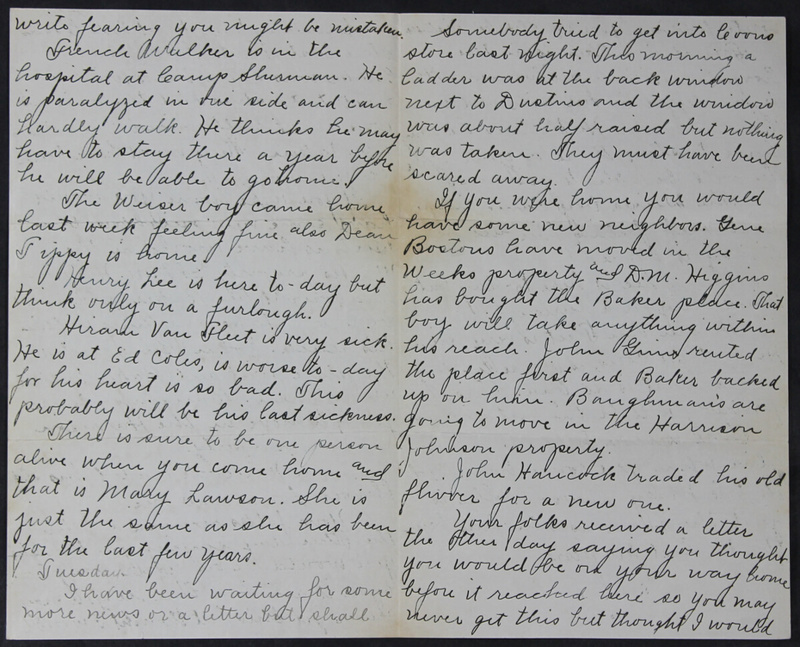 write fearing you might be mistaken.
French Walker is in the
hospital at Camp Sherman. He
is paralyzed in one side and can
hardly walk. He thinks he may
have to stay there a year before
he will be able to go home.
The Weiser boy came home
last week feeling fine also Dean
Tippy is home.
Henry Lee is here to-day but
think only on a furlough.
Hiram Van Fleet is very sick.
He is at Ed Coles, is worse to-day
for his heart is so bad. This
probably will be his last sickness.
There is sure to be one person
alive when you come home and
that is Mary Lawson. She is
just the same as she has been
for the last few years.
Tuesday
I have been waiting for some
more news or a letter but shall
Somebody tried to get into Coons
store last night. This morning a
ladder was at the back window
next to Dustins and the window
was about half raised but nothing
was taken. They must have been
scared away.
If you were home you would
have some new neighbors. Gene
Bostons have moved in the
Weeks property and D.M. Higgins
has bought the Baker place. That
boy will take anything within
his reach. John Ginn rented
the place first and Baker backed
up on him. Baughman's are
going to move in the Harrison
Johnson property.
John Hancock traded his old
flivver for a new one.
Your folks received a letter
the other day saying you thought
you would be on your way home
before it reached here so you may
never get this but thought I would